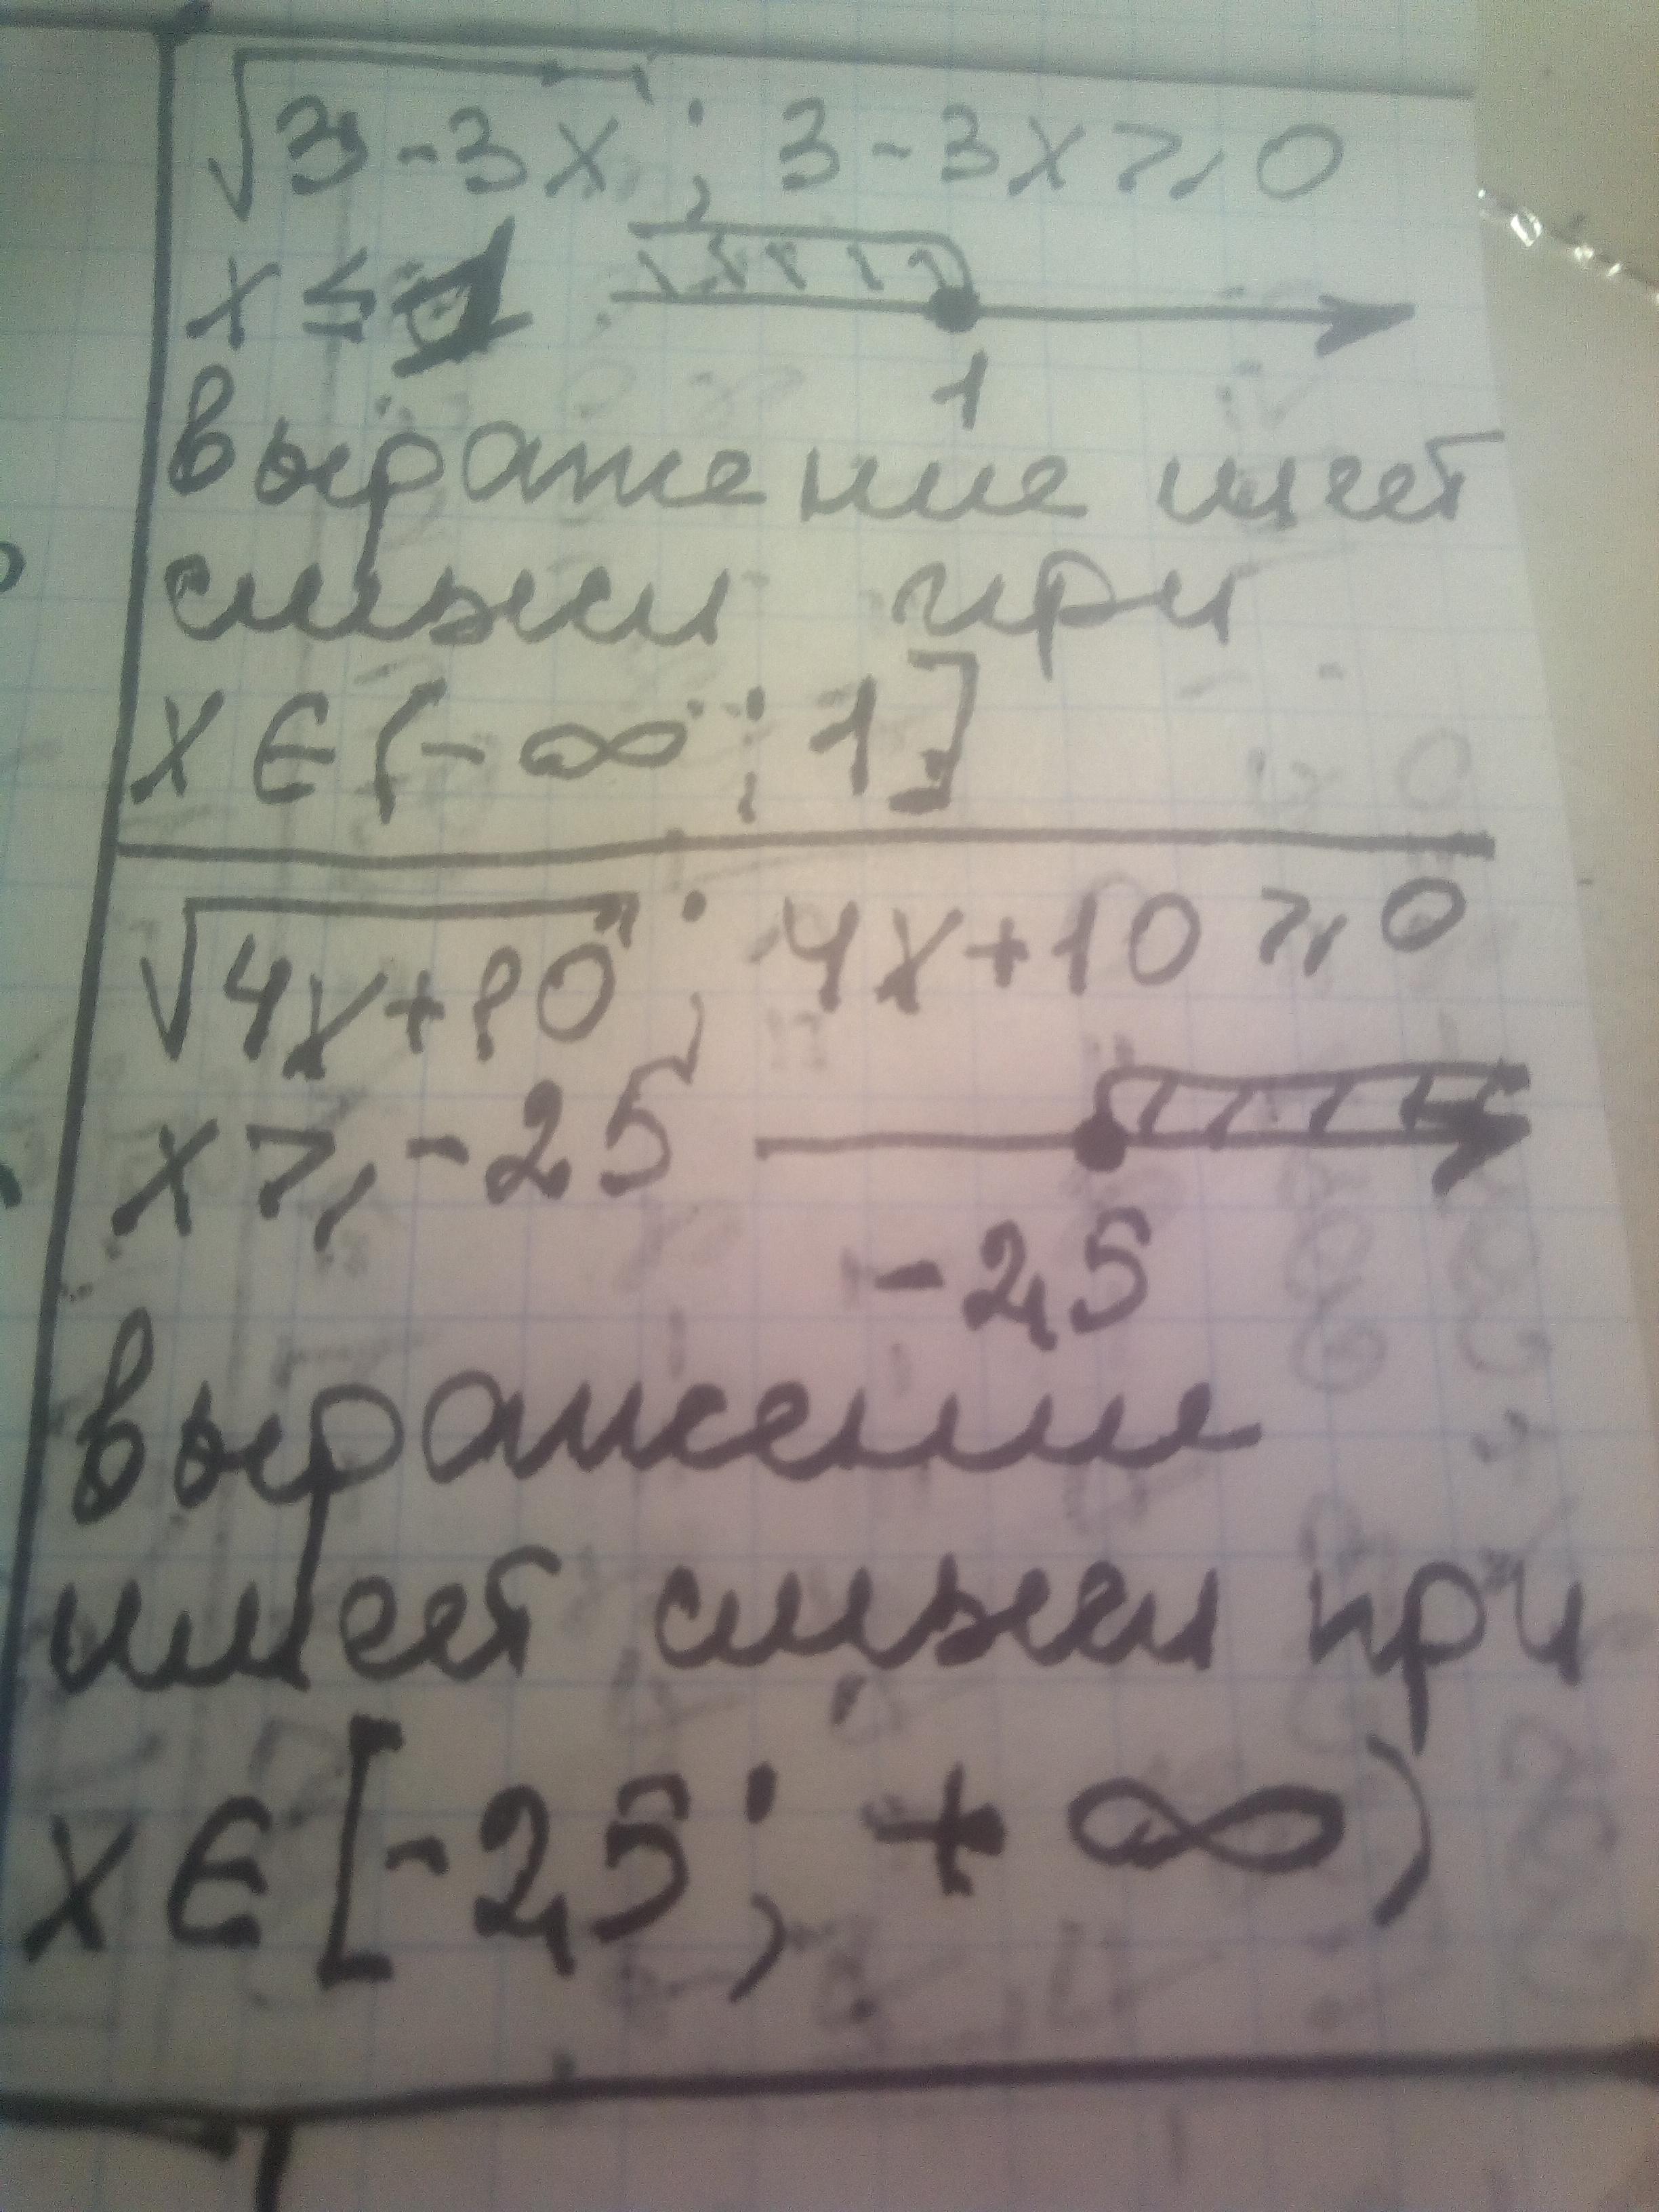 √3-3x ; 3-3x ≥ 0
x ≤ 1
1
выражение имеет
смысл при
x ∈ (-∞ ; 1]
√4x+10 ; 4x+10 ≥ 0
x ≥ -2,5
-2,5
выражение
имеет смысл при
x ∈ [-2,5 ; +∞)